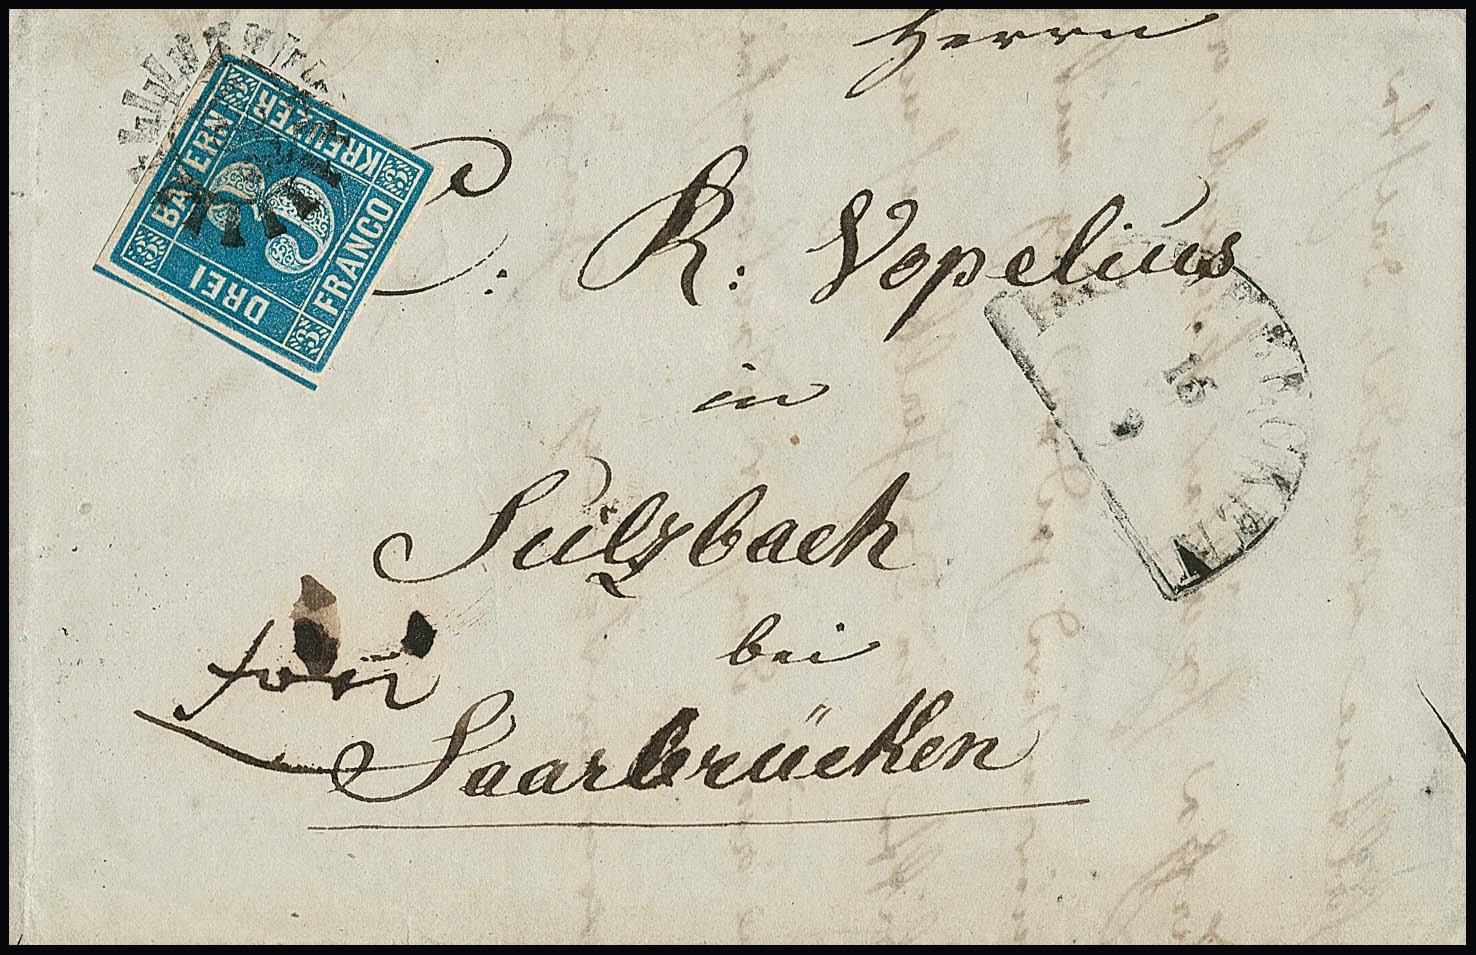 Herrn
BAYERN
KREUZER
FRANCO
DREI
3
C. R: Vopelius
16
in
Sulzbach
bei
Saarbrücken